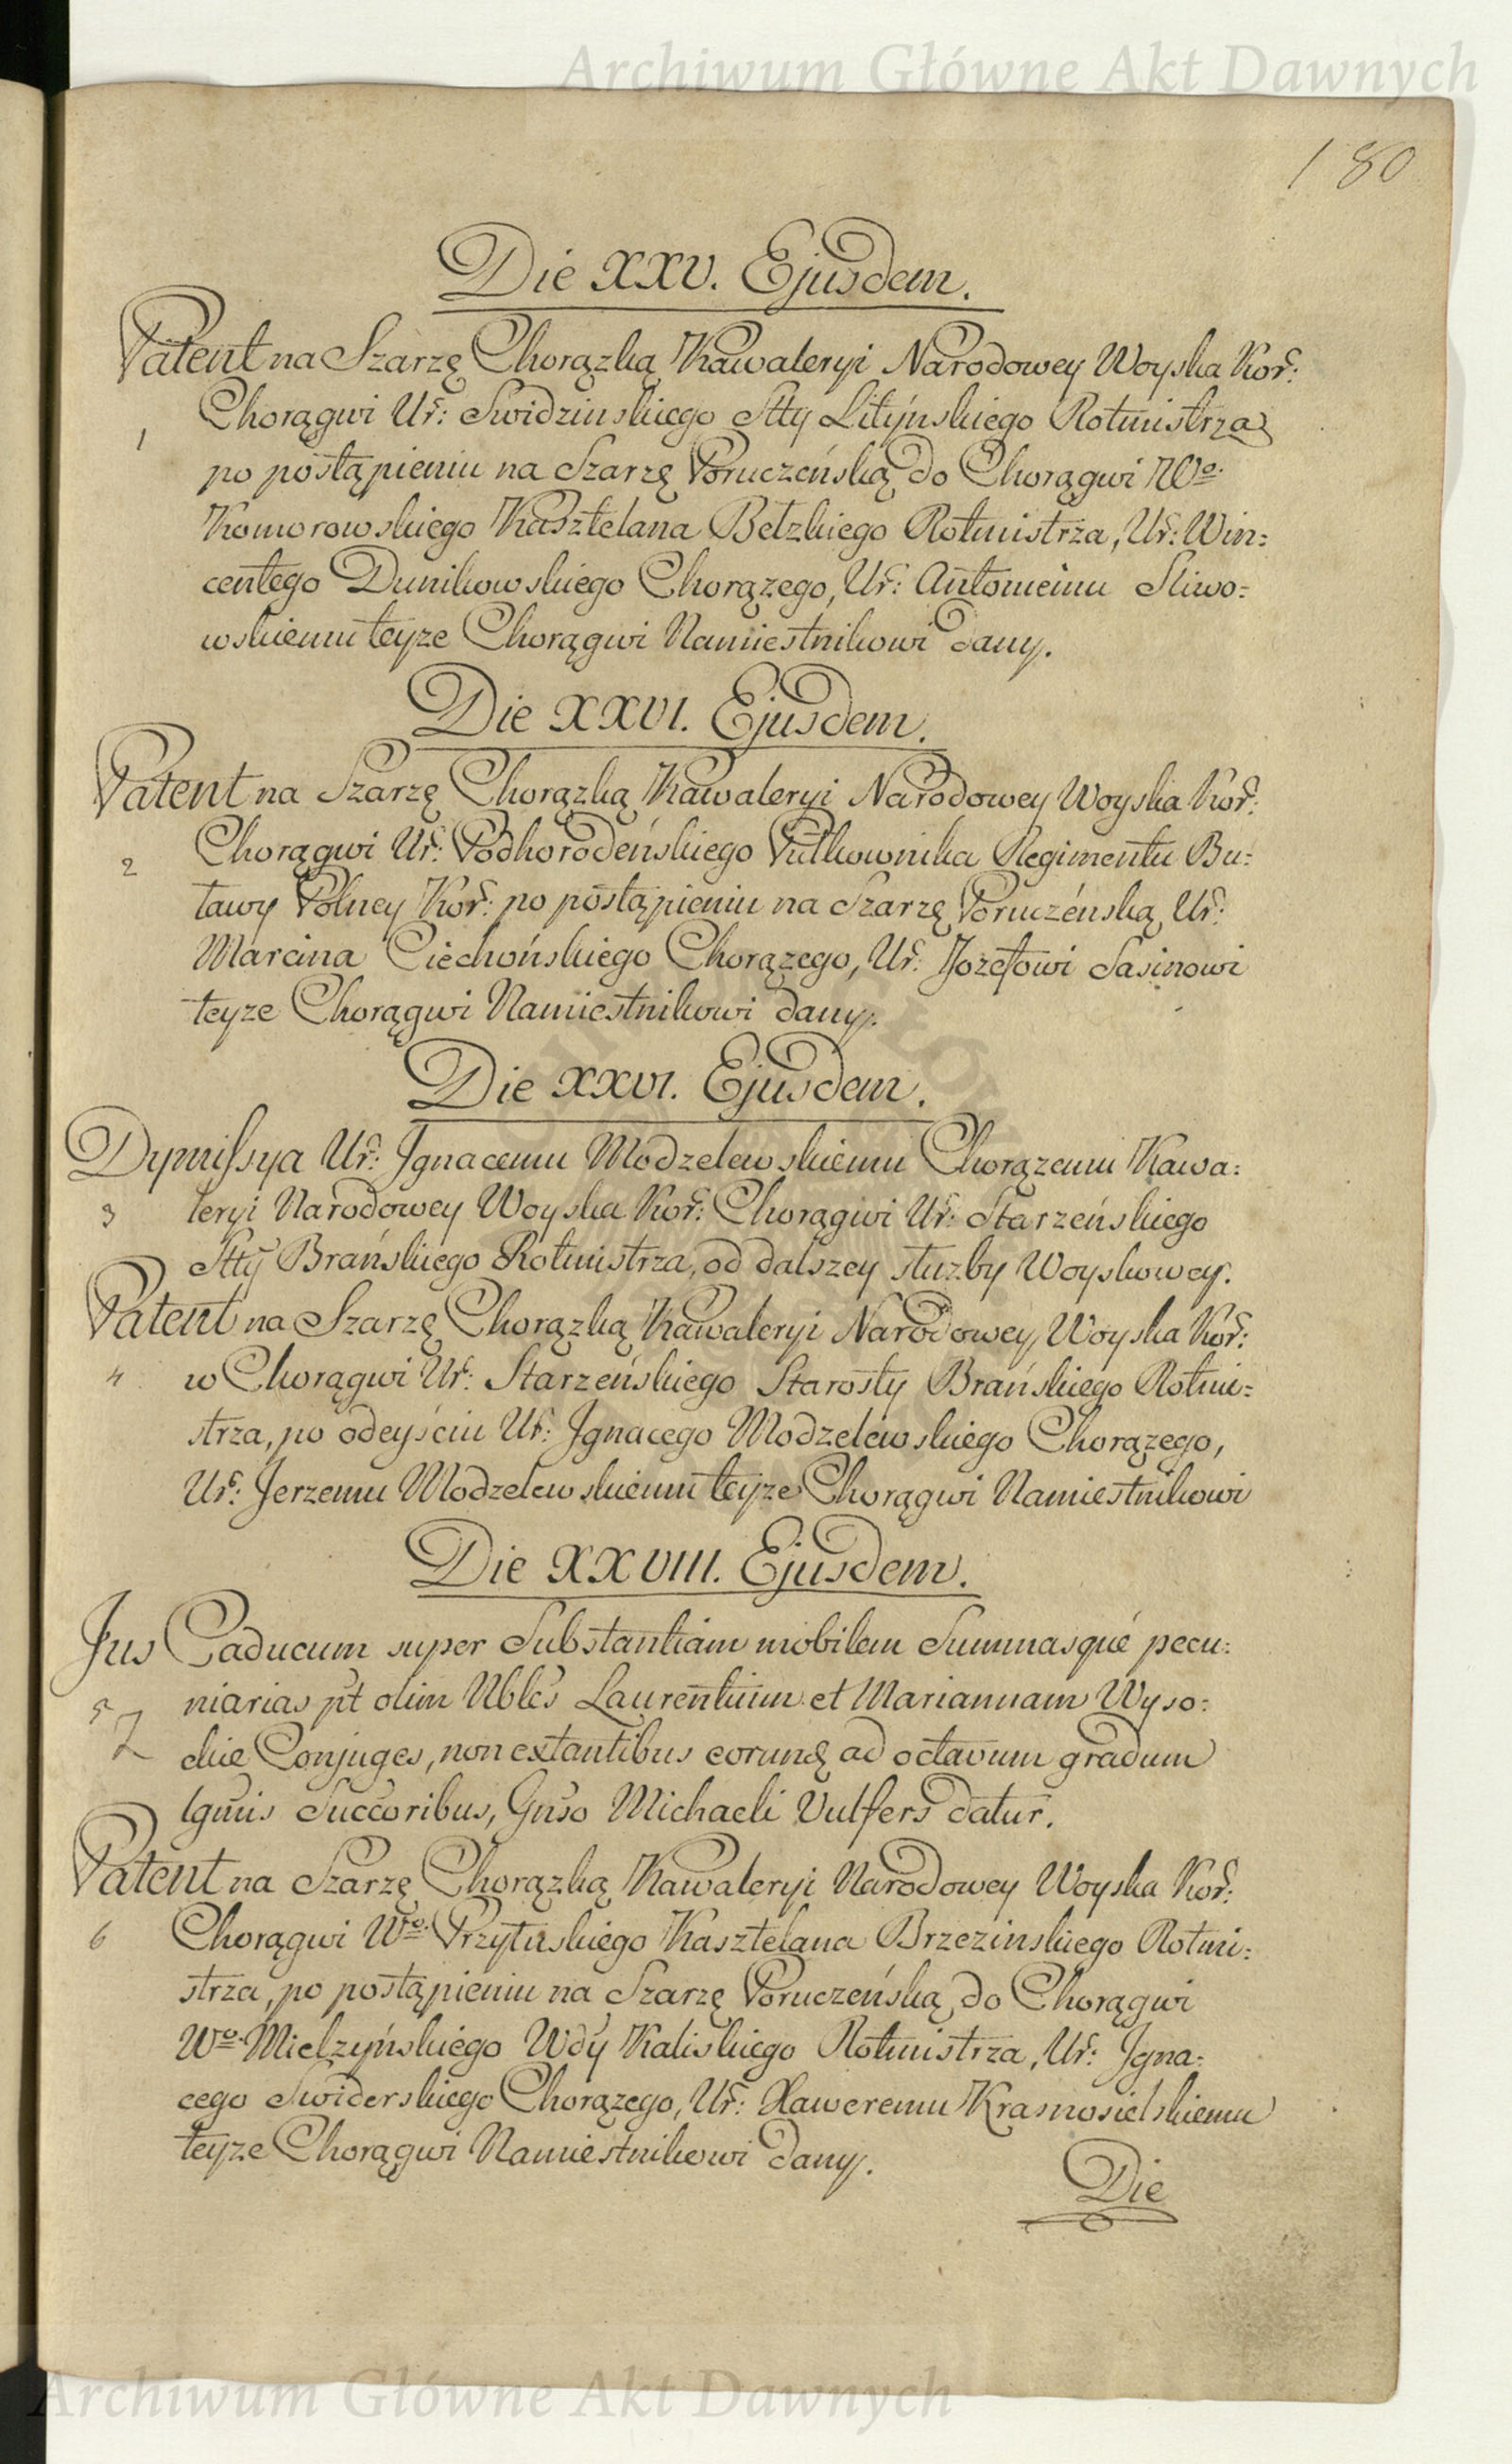 Archiwum Główne Akt Dawnych
180
Die XXV. Ejusdem.
Patent na Szarzę Chorązką Kawaleryi Narodowey Woyska Kor:
Chorągwi Ur: Swidzinskiego Stty Lityńskiego Rotmistrza
1
po postąpieniu na Szarzę Poruczeńską do Chorągwi Wo.
Komorowskiego Kasztelana Bełzkiego Rotmistrza, Ur: Win=
centego Dunikowskiego Chorązego, Ur: Antoniemu Sliwo=
wskiemu teyze Chorągwi Namiestnikowi dany.
Die XXVI. Ejusdem.
Patent na Szarzę Chorązką Kawaleryi Narodowey Woyska Kor:
2 Chorągwi Ur: Podhorodeńskiego Pułkownika Regimentu Bu=
ławy Polney Kor: po postąpieniu na Szarzę Poruczeńską Ur:
Marcina Ciechońskiego Chorązego, Ur: Jozefowi Sasinowi
teyze Chorągwi Namiestnikowi dany.
Die XXVI. Ejusdem.
Dymissya Ur: Ignacemu Modzelewskiemu Chorązemu Kawa=
3 leryi Narodowey Woyska Kor: Chorągwi Ur: Starzeńskiego
Stty Brańskiego Rotmistrza, od dalszey służby Woyskowey.
Patent na Szarzę Chorązką Kawaleryi Narodowey Woyska Kor:
4 w Chorągwi Ur: Starzeńskiego Starosty Brańskiego Rotmi=
strza, po odeyściu Ur: Ignacego Modzelewskiego Chorązego,
Ur: Jerzemu Modzelewskiemu teyze Chorągwi Namiestnikowi
Die XXVIII. Ejusdem.
Jus Caducum super Substantiam mobilem Summasqué pecu=
5 niarias pt olim Nbles Laurentium et Mariannam Wyso=
ckie Conjuges, non extantibus eorundę ad octavum gradum
lgmis Succoribus, Gnso Michaeli Vulfers datur.
Patent na Szarzę Chorązką Kawaleryi Narodowey Woyska Kor:
6 Chorągwi Wo. Przyłuskiego Kasztelana Brzezinskiego Rotmi=
strza, po postąpieniu na Szarzę Poruczeńską do Chorągwi
Wo. Mielzyńskiego Wdy Kaliskiego Rotmistrza, Ur: Igna=
cego Swiderskiego Chorązego, Ur: Xaweremu Krasnosielskiemu
teyze Chorągwi Namiestnikowi dany.
Die
Archiwum Główne Akt Dawnych